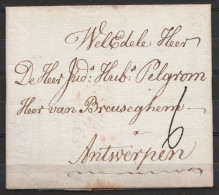 WelEdele Heer
De Heer Jud.s Huib.s Pelgrom
Heer van Breuseghem
a
Antwerpen
6